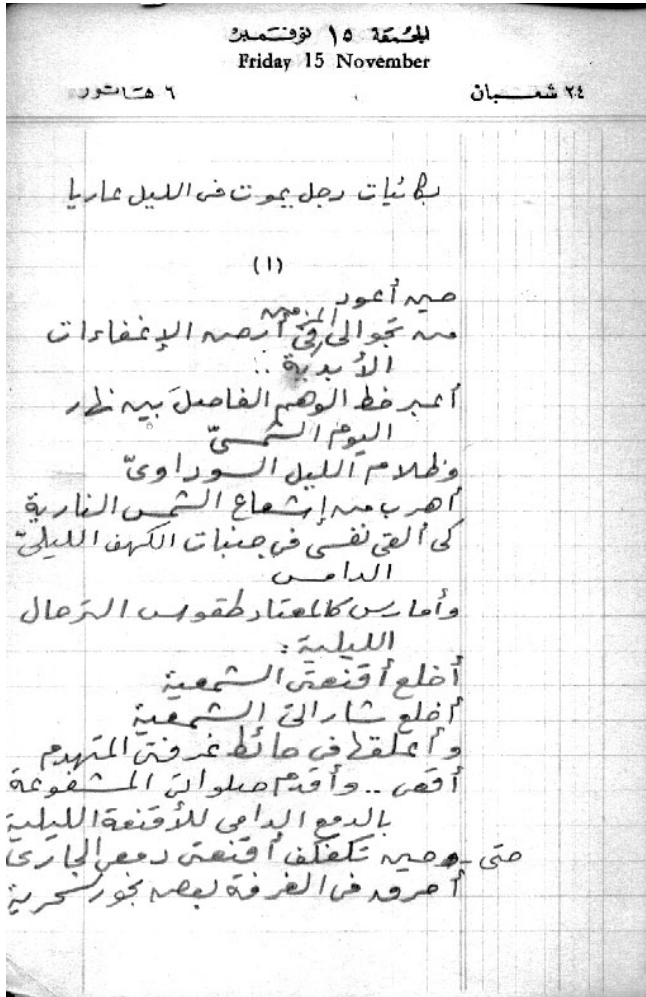 الجمعة ١٥ نوفمبر
Friday 15 November
٢٤ شعبان ٦ هاتور
بكائيات رجل يموت فى الليل عاريا
(١)
حين أعود
من تجوالى المزمن فى أرض الإغفاءات
الأبدية ..
أعبر خط الوهم الفاصلَ بين نهار
اليوم الشمسىّ
وظلام الليل السوداوىّ
أهرب من إشعاع الشمس النارية
كى ألقى نفسى فى جنبات الكهف الليلىّ
الدامس
وأمارس كالمعتاد طقوس الترحال
الليلية :
أخلع أقنعتى الشمعية
أخلع شاراتى الشمعية
وأعلقها فى حائط غرفتى المتهدم
أقعى .. وأقدم صلواتى المشفوعة
بالدمع الدامى للأقنعة الليلية
حتى - حين تكفكف أقنعتى دمعى الجارى
أحرق فى الغرفة بعض بخور السحرية